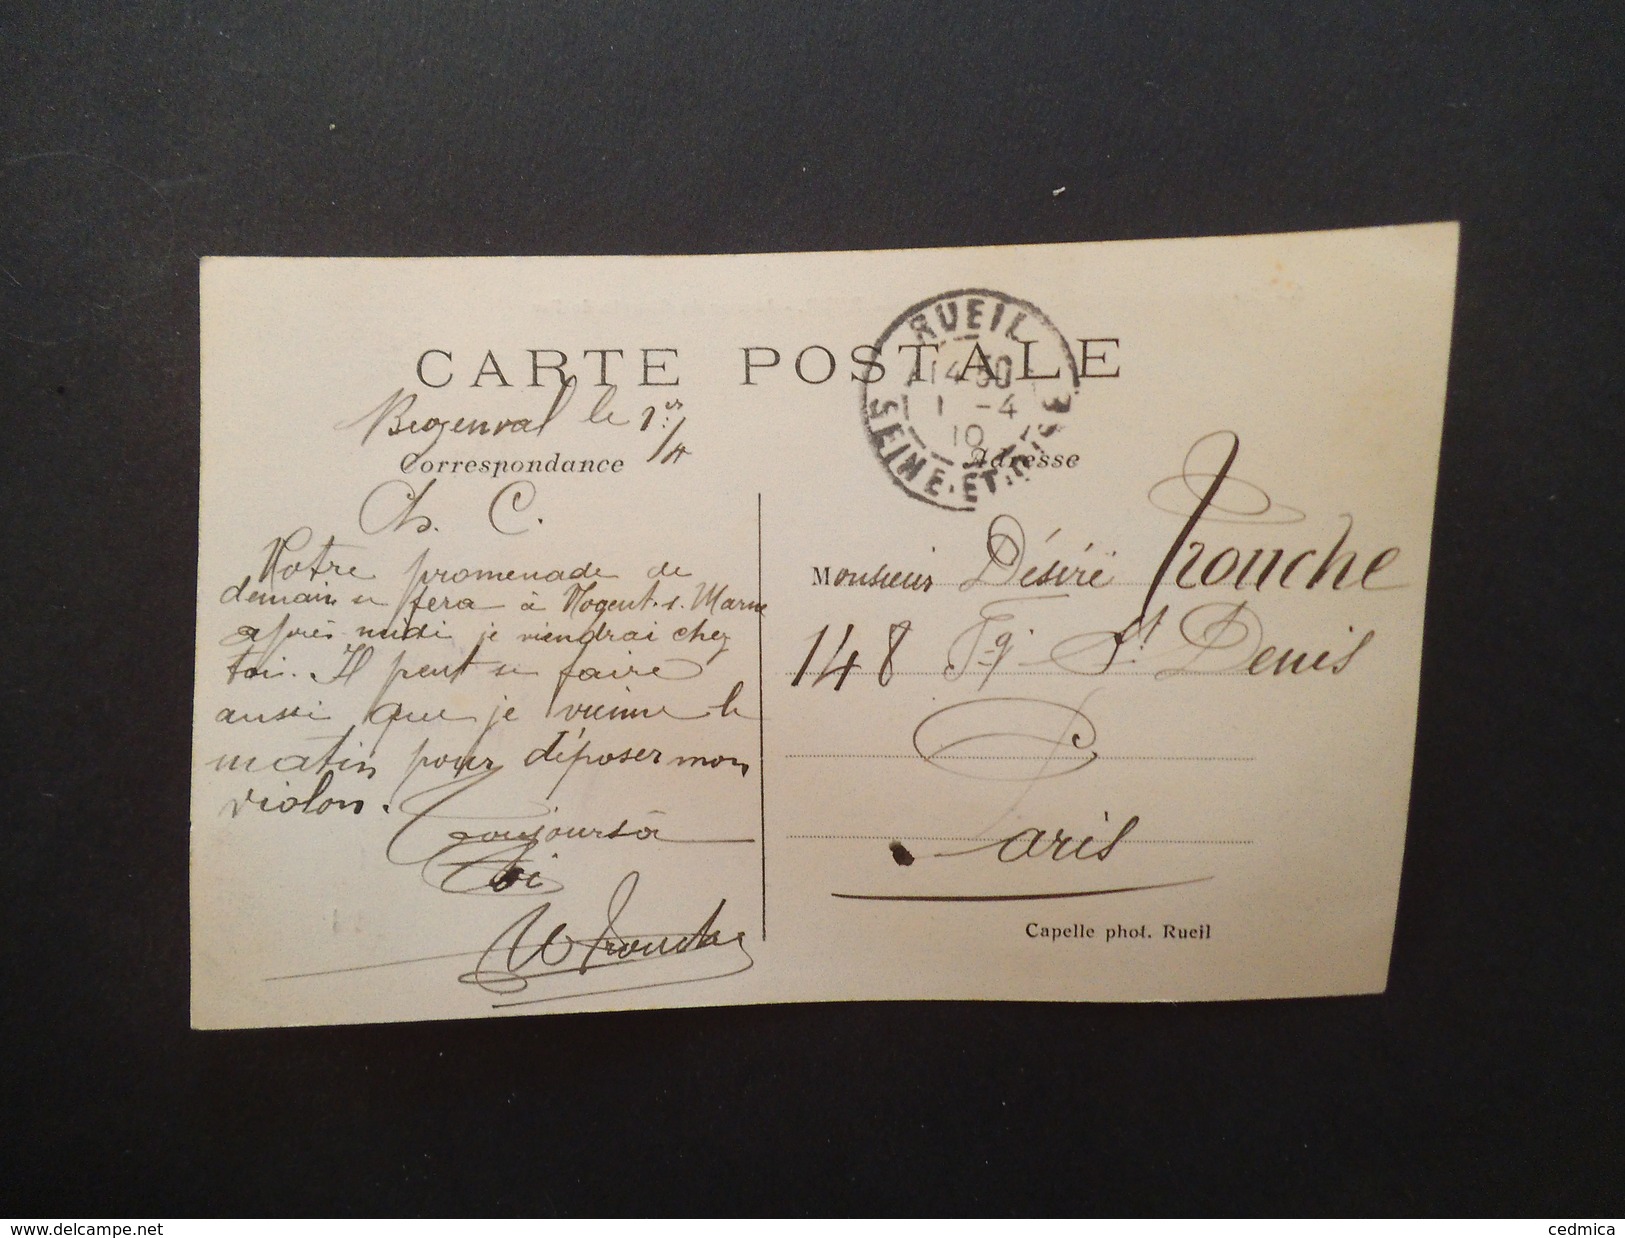 CARTE POSTALE
RUEIL
14 30
1 -4
10
SEINE-ET-OISE
Buzenval le 1er/4
Correspondance
Adresse
Ch. C.
Notre promenade de
demain se fera à Nogent-s-Marne
après midi je viendrai chez
toi. Il peut se faire
aussi que je vienne le
matin pour déposer mon
violon.
Toujours à
toi
Trouche
Monsieur Désiré Trouche
148 Fg St Denis
Paris
Capelle phot. Rueil
delcampe.net
cedmica